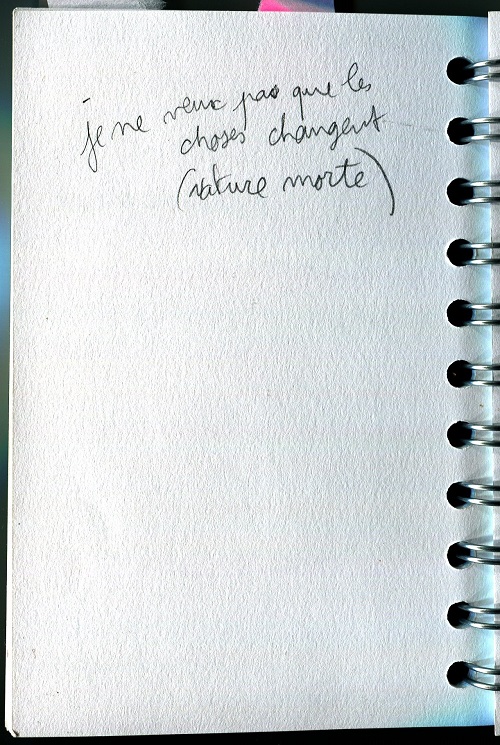 je ne veux pas que les
choses changent
(nature morte)